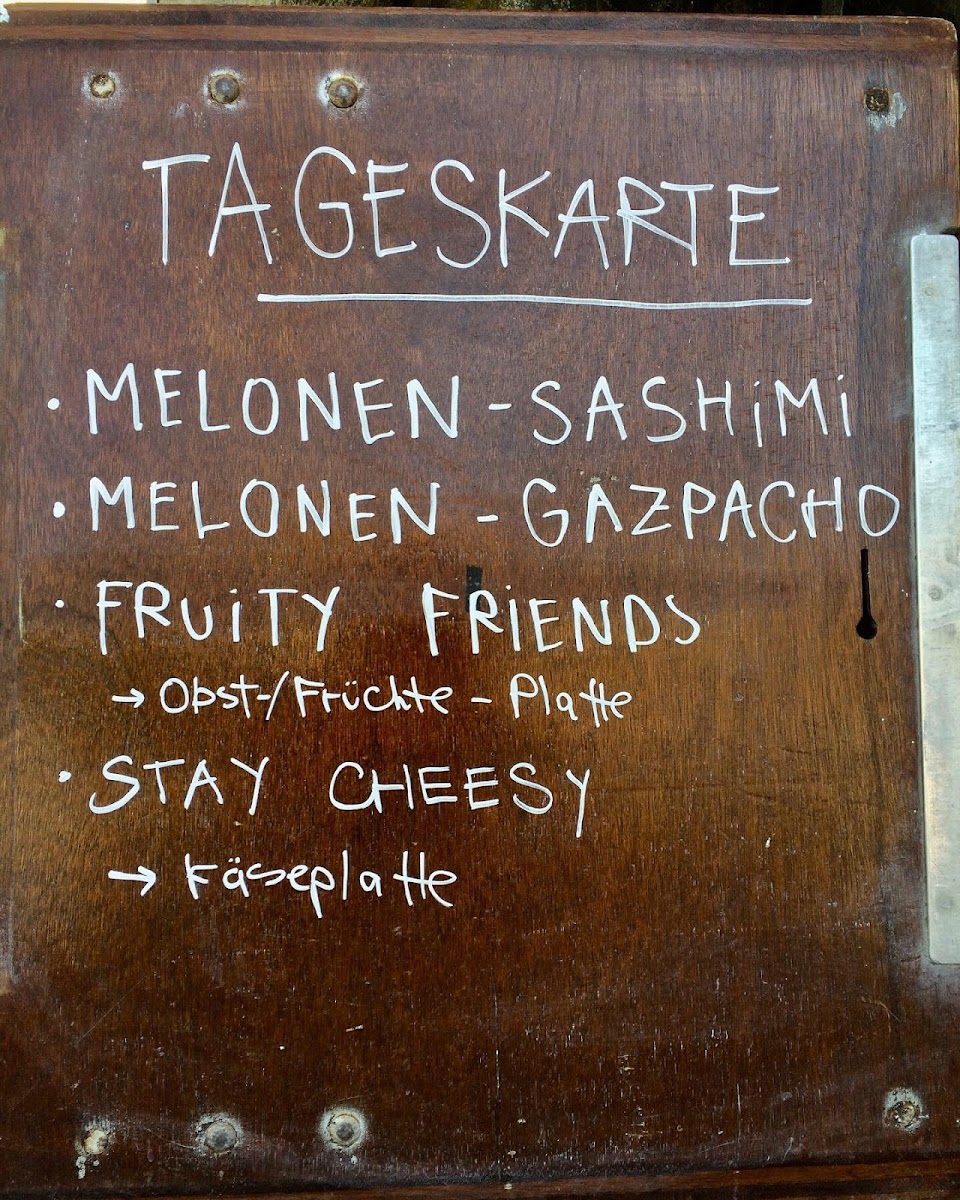 TAGESKARTE
· MELONEN - SASHiMi
· MELONEN - GAZPACHO
· FRUiTY FRiENDS
→ Obst-/Früchte - Platte
· STAY CHEESY
→ Käseplatte